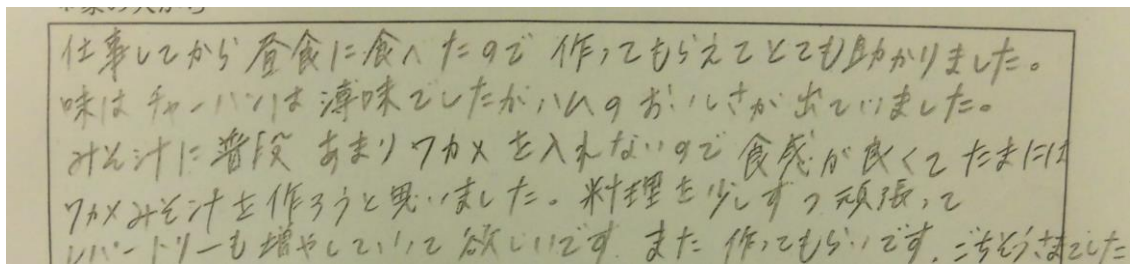 仕事してから昼食に食べたので作ってもらえてとても助かりました。
味はチャーハンは薄味でしたがハムのおいしさが出ていました。
みそ汁に普段あまりワカメを入れないので食感が良くてたまには
ワカメみそ汁を作ろうと思いました。料理を少しずつ頑張って
レパートリーも増やしていって欲しいです。また作ってもらいです。ごちそうさまでした